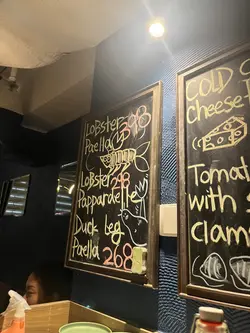 Lobster 398
Paella
Lobster 298
Pappardelle
Duck leg
Paella 268
COLD
cheese
Tomato
with
clams